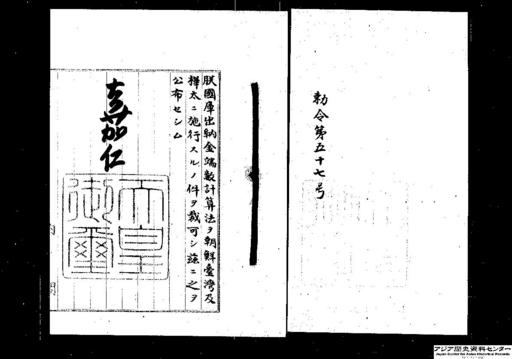 勅令第五十七号
朕國庫出納金端數計算法ヲ朝鮮臺灣及
樺太ニ施行スルノ件ヲ裁可シ茲ニ之ヲ
公布セシム
嘉仁
天皇
御璽
内閣
アジア歴史資料センター
Japan Center for Asian Historical Records